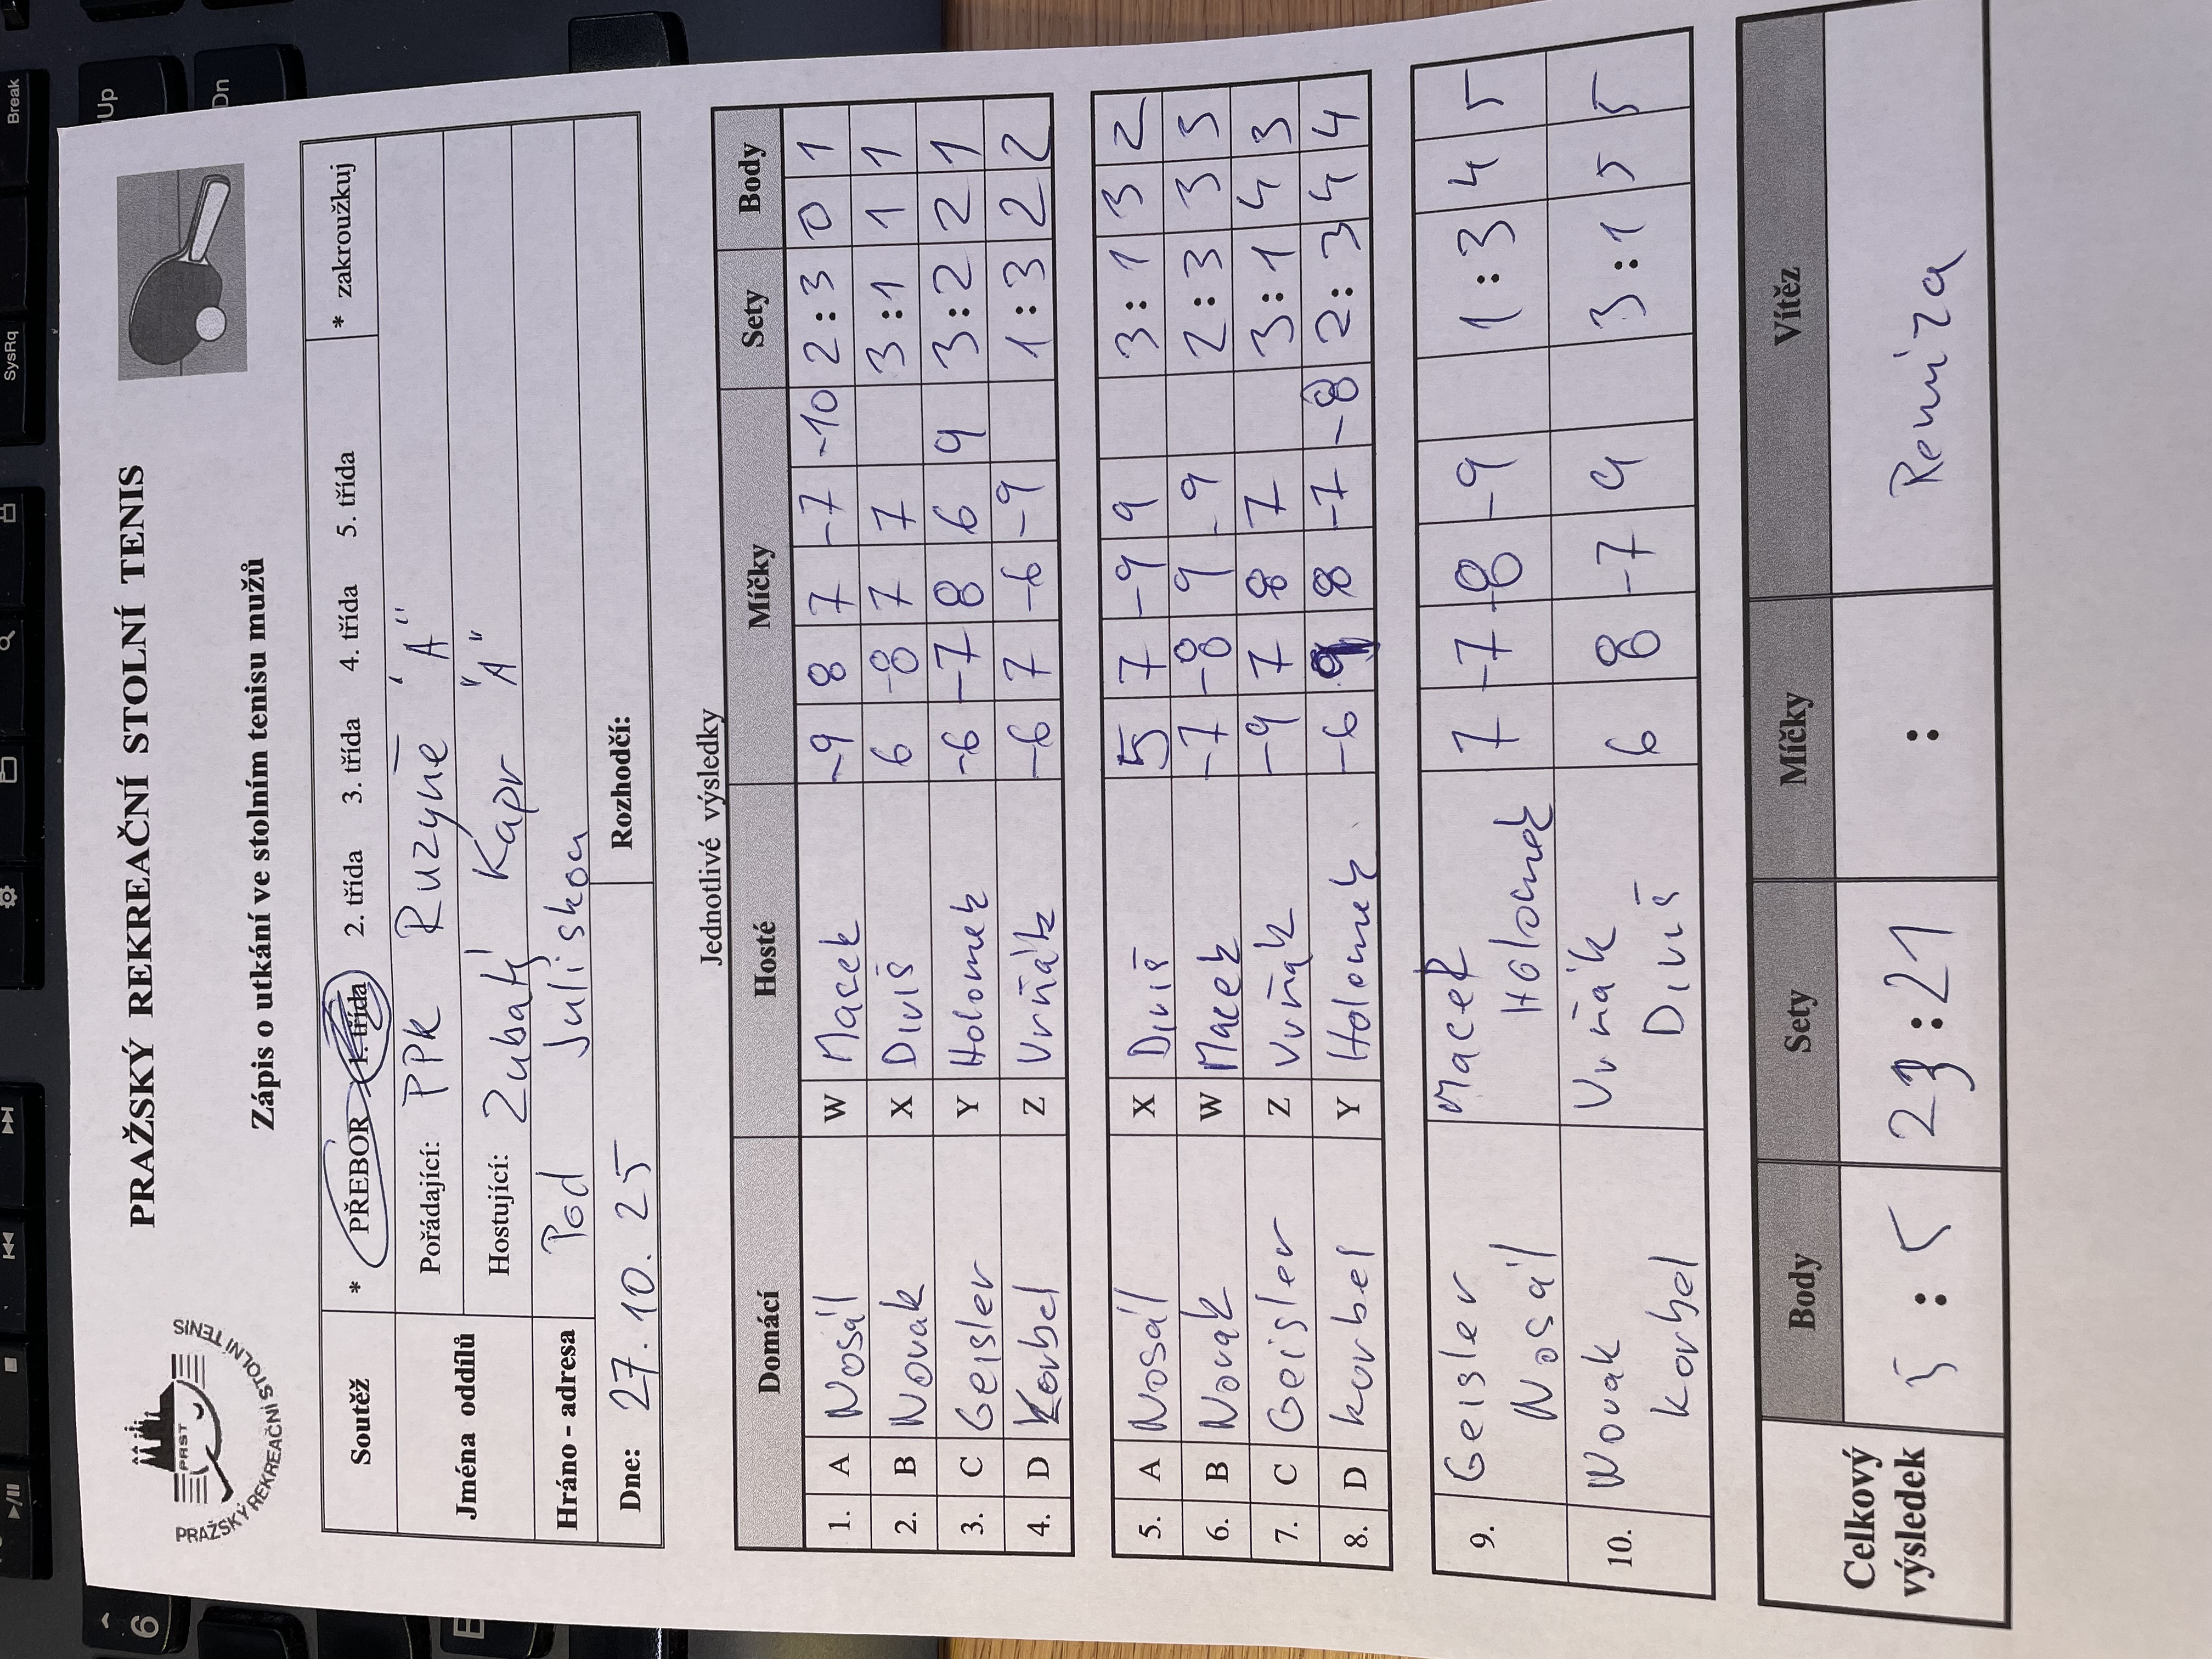 PRAŽSKÝ REKREAČNÍ STOLNÍ TENIS
PRST
PRAŽSKÝ REKREAČNÍ STOLNÍ TENIS
Zápis o utkání ve stolním tenisu mužů
Soutěž * PŘEBOR 1. třída 2. třída 3. třída 4. třída 5. třída * zakroužkuj
Jména oddílů Pořádající: PPK Ruzyně "A"
Hostující: Zubatý Kapr "A"
Hráno - adresa Pod Juliskou
Dne: 27.10.25 Rozhodčí:
Jednotlivé výsledky
Domácí Hosté Míčky Sety Body
1. A Nosál W Macek -9 8 7 -7 -10 2:3 0 1
2. B Novak X Diviš 6 -8 7 7 3:1 1 1
3. C Geisler Y Holomek -6 -7 8 6 9 3:2 2 1
4. D Korbel Z Vrňák -6 7 -6 -9 1:3 2 2
5. A Nosál X Diviš 5 7 -9 9 3:1 3 2
6. B Novák W Macek -7 -8 9 -9 2:3 3 3
7. C Geisler Z Vrňák -9 7 8 7 3:1 4 3
8. D Korbel Y Holomek -6 9 8 -7 -8 2:3 4 4
9. Geisler Macek 7 -7 -8 -9 1:3 4 5
Nosál Holomek
10. Novak Vrňák 6 8 -7 9 3:1 5 5
Korbel Diviš
Celkový výsledek Body Sety Míčky Vítěz
5:5 23:21 : Remiza
Break
SysRq
Up
Dn
6